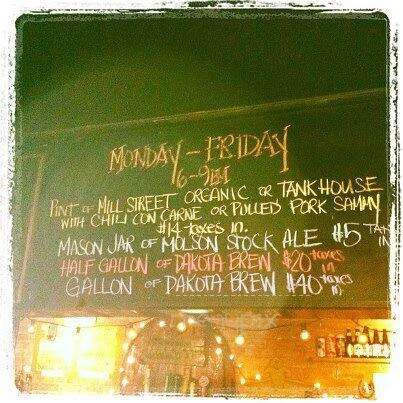 MONDAY - FRIDAY
6-9PM
PINT OF MILL STREET ORGANIC OR TANKHOUSE
WITH CHILI CON CARNE OR PULLED PORK SAMMY
$14 taxes in.
MASON JAR OF MOLSON STOCK ALE $5 TAX IN
HALF GALLON OF DAKOTA BREW $20 taxes in
GALLON OF DAKOTA BREW $40 taxes in